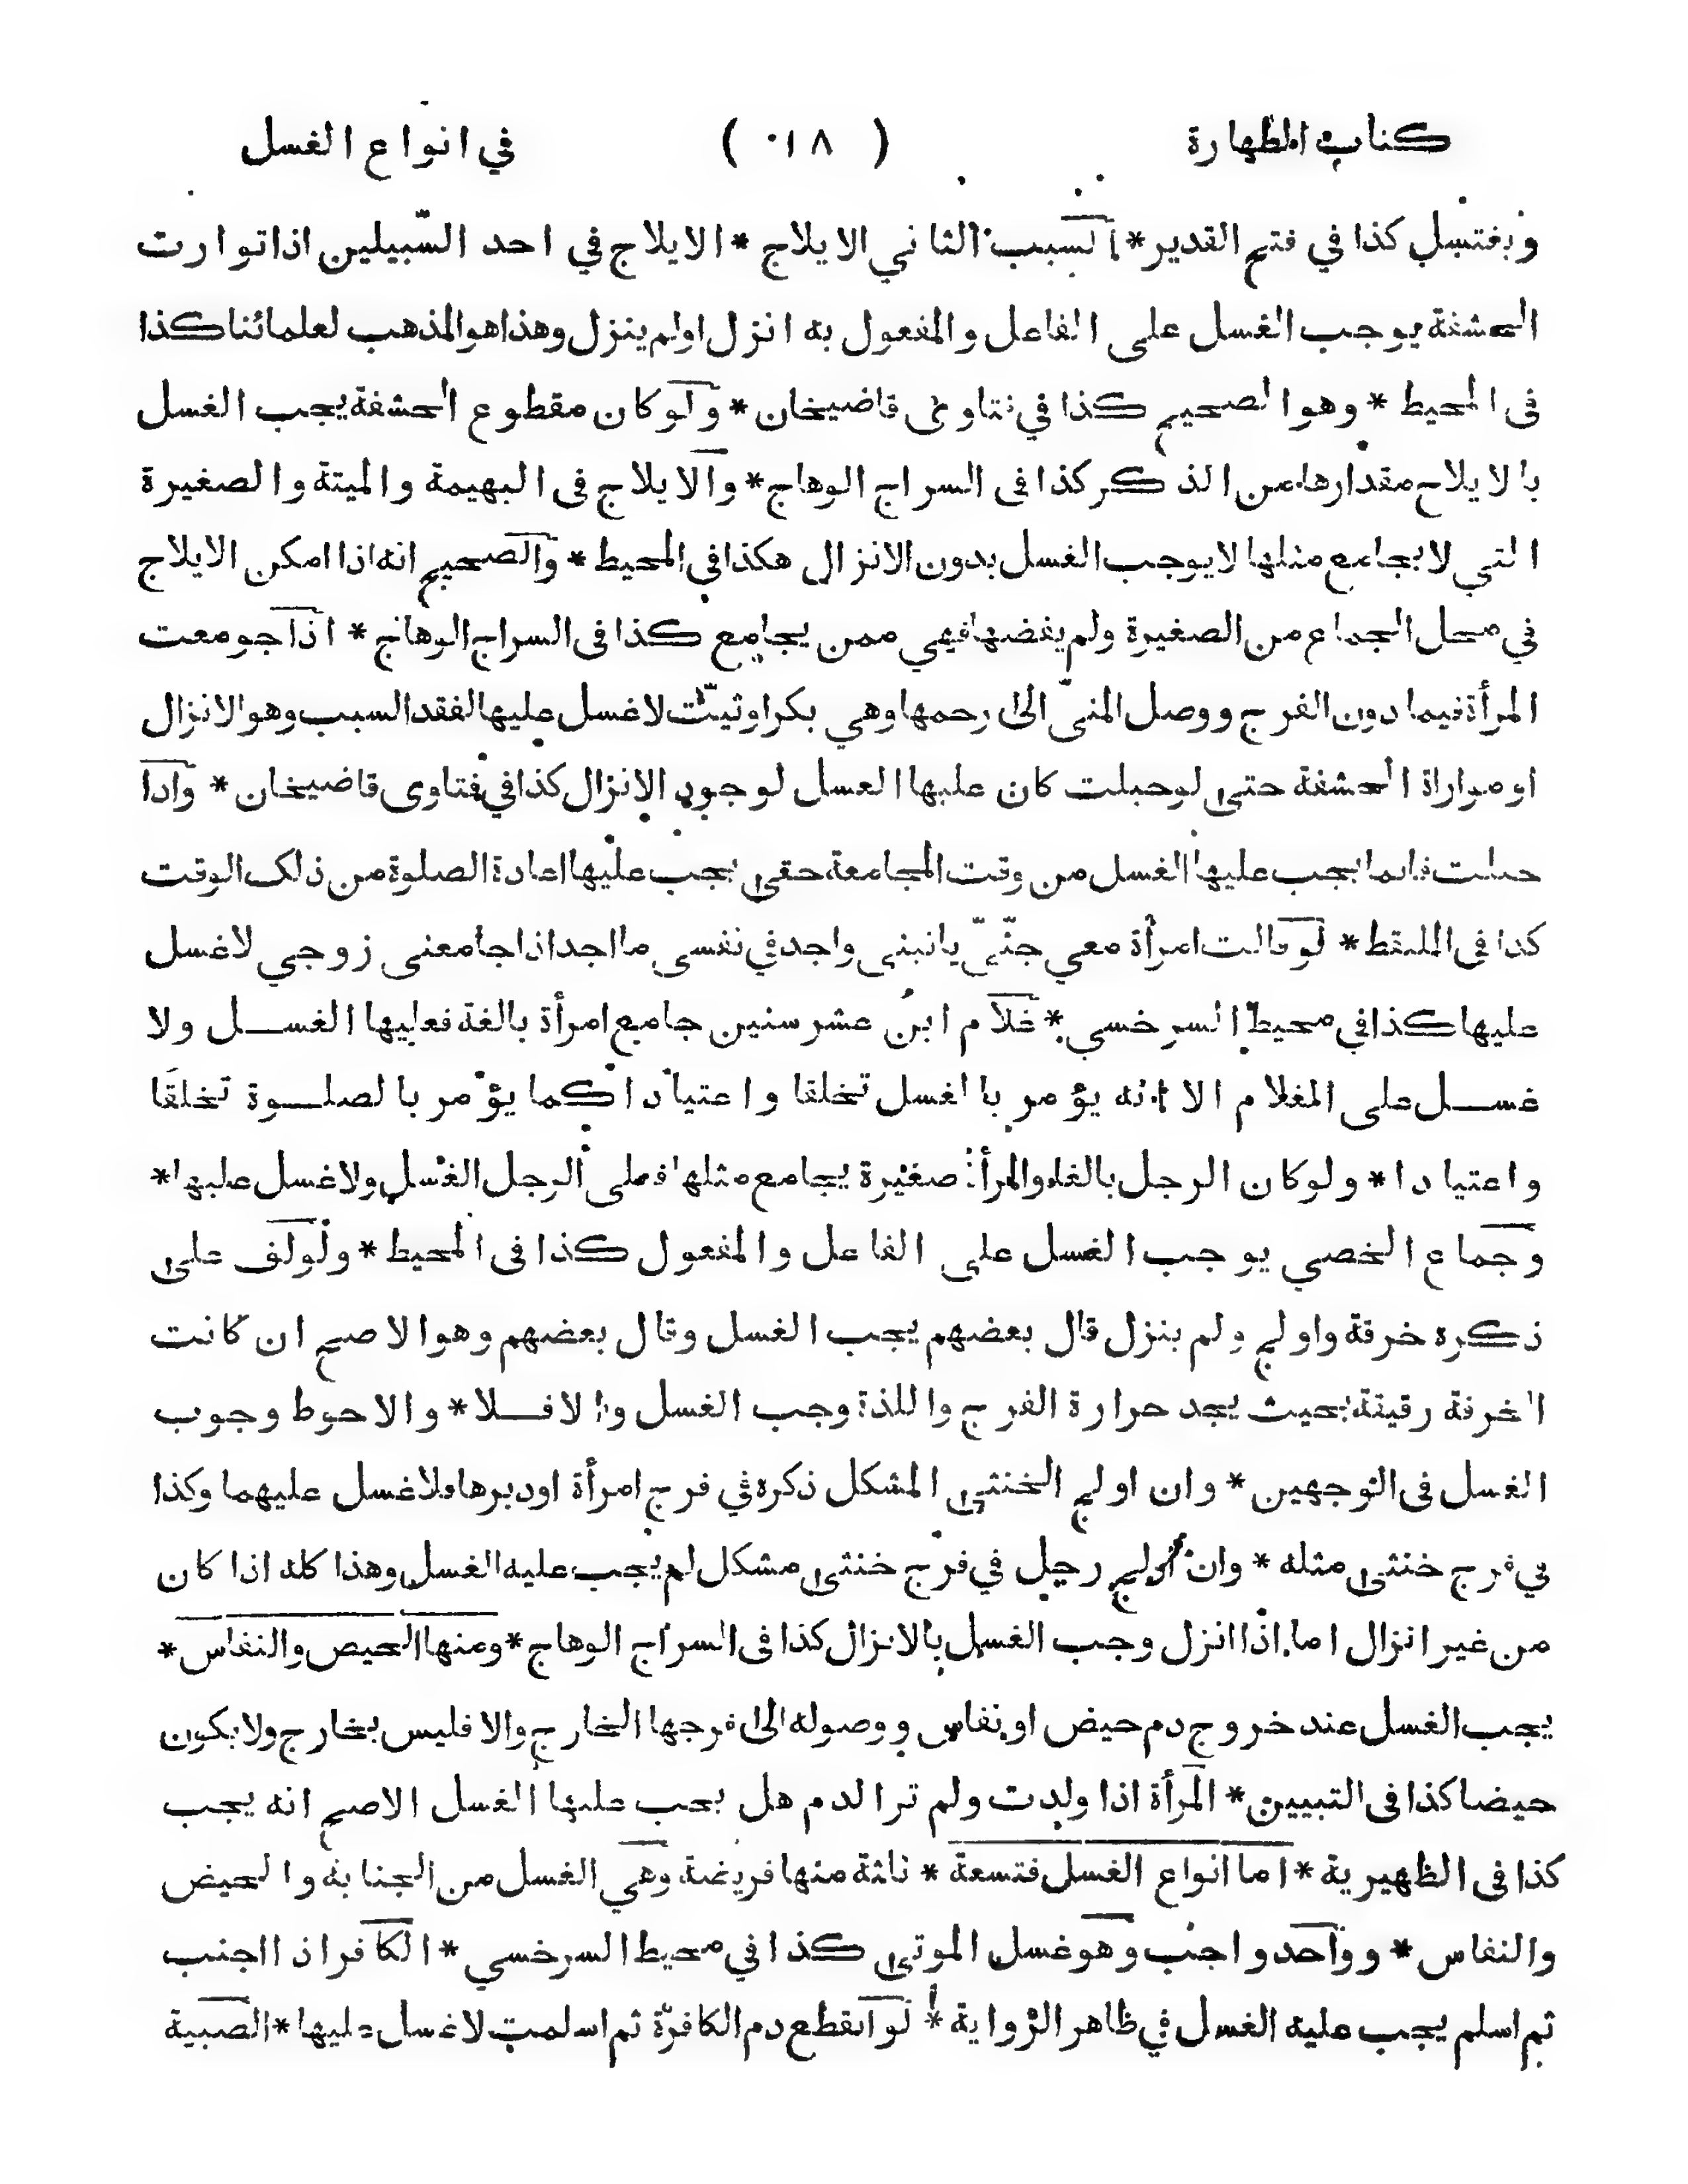 كتاب الطهارة ( ١٨ ) في انواع الغسل
ويغتسل كذا في فتح القدير * السبب الثاني الايلاج * الايلاج في احد السّبيلين اذا توارت
الحشفة يوجب الغسل على الفاعل والمفعول به انزل اولم ينزل وهذا هو المذهب لعلمائنا كذا
فى المحيط * وهو الصحيح كذا في فتاوى قاضيخان * ولو كان مقطوع الحشفة يجب الغسل
بالايلاج مقدارها من الذكر كذا فى السراج الوهاج * والايلاج فى البهيمة والميتة والصغيرة
التي لا يجامع مثلها لا يوجب الغسل بدون الانزال هكذا في المحيط * والصحيح انه اذا امكن الايلاج
في محل الجماع من الصغيرة ولم يفضها فهي ممن يجامع كذا فى السراج الوهاج * اذا جومعت
المرأة فيما دون الفرج ووصل المنيّ الى رحمها وهي بكر او ثيّب لا غسل عليها لفقد السبب وهو الانزال
او مواراة الحشفة حتى لو حبلت كان عليها الغسل لوجود الانزال كذا في فتاوى قاضيخان * واذا
حبلت فانما يجب عليها الغسل من وقت المجامعة حتى يجب عليها اعادة الصلوة من ذلك الوقت
كذا فى الملتقط * لو قالت امرأة معي جنّيّ يأتيني واجد في نفسى ما اجد اذا جامعنى زوجي لا غسل
عليها كذا في محيط السرخسي * غلام ابن عشر سنين جامع امرأة بالغة فعليها الغسل ولا
غسل على الغلام الا انه يؤمر بالغسل تخلقا واعتيادا كما يؤمر بالصلوة تخلقا
واعتيادا * ولو كان الرجل بالغا والمرأة صغيرة يجامع مثلها فعلى الرجل الغسل ولا غسل عليها *
وجماع الخصي يوجب الغسل على الفاعل والمفعول كذا فى المحيط * ولو لف على
ذكره خرقة واولج ولم ينزل قال بعضهم يجب الغسل وقال بعضهم وهو الاصح ان كانت
الخرقة رقيقة بحيث يجد حرارة الفرج واللذة وجب الغسل والا فلا * والاحوط وجوب
الغسل فى الوجهين * وان اولج الخنثى المشكل ذكره في فرج امرأة او دبرها فلا غسل عليهما وكذا
في فرج خنثى مثله * وان اولج رجل في فرج خنثى مشكل لم يجب عليه الغسل وهذا كله اذا كان
من غير انزال اما اذا انزل وجب الغسل بالانزال كذا فى السراج الوهاج * ومنها الحيض والنفاس *
يجب الغسل عند خروج دم حيض او نفاس ووصوله الى فرجها الخارج والا فليس بخارج ولا يكون
حيضا كذا فى التبيين * المرأة اذا ولدت ولم تر الدم هل يجب عليها الغسل الاصح انه يجب
كذا فى الظهيرية * اما انواع الغسل فتسعة * ثلثة منها فريضة وهي الغسل من الجنابة والحيض
والنفاس * وواحد واجب وهو غسل الموتى كذا في محيط السرخسي * الكافر اذا اجنب
ثم اسلم يجب عليه الغسل في ظاهر الرواية * لو انقطع دم الكافرة ثم اسلمت لا غسل عليها * الصبية